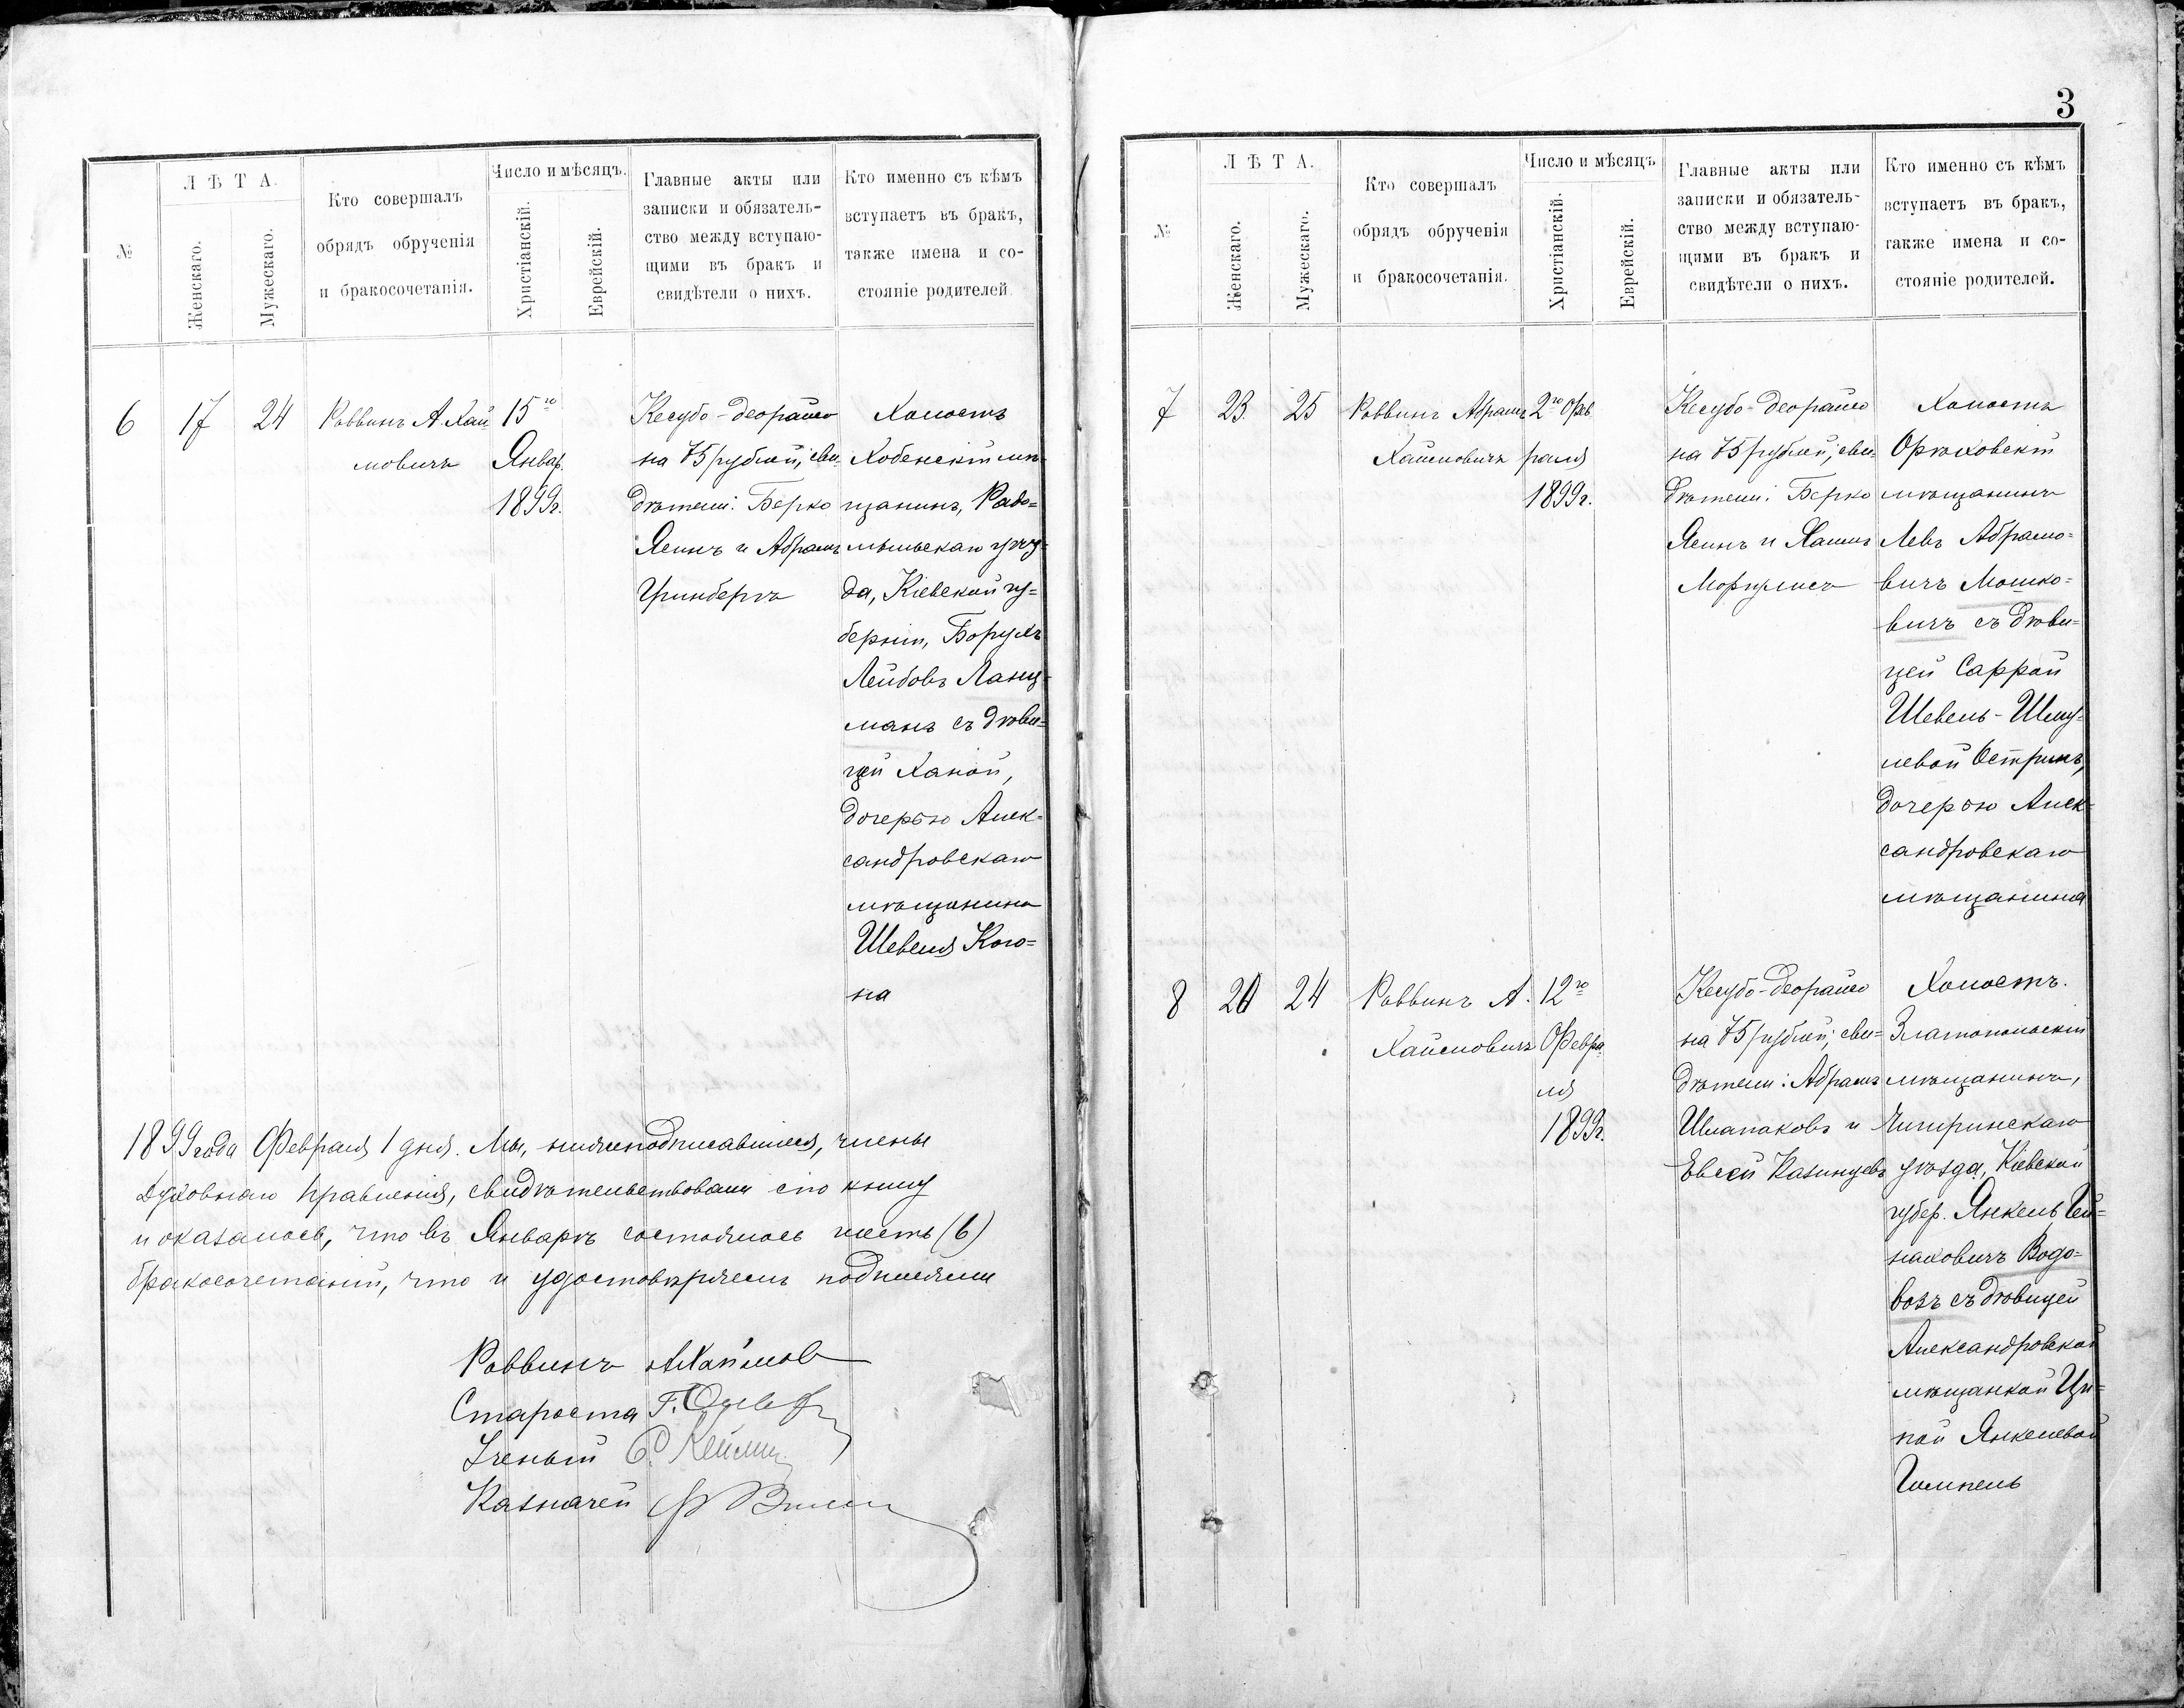 Л Ѣ Т А.
№
Женскаго.
Мужескаго.
Кто совершалъ
обрядъ обрученія
и бракосочетанія.
Число и мѣсяцъ.
Христіанскій.
Еврейскій.
Главные акты или
записки и обязатель-
ство между вступаю-
щими въ бракъ и
свидѣтели о нихъ.
Кто именно съ кѣмъ
вступаетъ въ бракъ,
также имена и со-
стояніе родителей.
6
17
24
Раввинъ А. Хай
мовичъ
15го
Январ.
1899г.
Кесубо-деорайсо
на 75 рублей, сви-
дѣтели: Берко
Ясинъ и Абрамъ
Гринбергъ
Холостъ
Хобенскій мѣ-
щанинъ, Радо=
мысьскаго уѣз=
да, Кіевской гу=
берніи, Борухъ
Лейбовъ Ланц-
манъ съ дѣви=
цей Ханой,
дочерью Алек=
сандровскаго
мѣщанина
Шевеля Кого=
на
1899 года Февраля 1 дня. Мы, нижеподписавшіеся, члены
Духовнаго Правленія, свидѣтельствовали сію книгу
и оказалось, что въ Январѣ состоялось шесть (6)
бракосочетаній, что и удостовѣряемъ подписями
Раввинъ А Хаймов
Староста Г.
Ученый
Казначей
3
Л Ѣ Т А.
№
Женскаго.
Мужескаго.
Кто совершалъ
обрядъ обрученія
и бракосочетанія.
Число и мѣсяцъ
Христіанскій.
Еврейскій.
Главные акты или
записки и обязатель-
ство между вступаю-
щими въ бракъ и
свидѣтели о нихъ.
Кто именно съ кѣмъ
вступаетъ въ бракъ,
также имена и со-
стояніе родителей.
7
23
25
Раввинъ Абрамъ
Хаймовичъ
2го Фев
раля
1899г.
Кесубо-деорайсо
на 75 рублей, сви=
дѣтели: Берко
Ясинъ и Хаимъ
Моргулисъ
Холостъ
Орѣховскій
мѣщанинъ
Левъ Абрамо=
вичъ Мошко=
вичъ съ дѣви=
цей Саррой
Шевель-Шму=
левой Остринъ,
дочерью Алек=
сандровскаго
мѣщанина
8
20
24
Раввинъ А.
Хаймовичъ
12го
Февра
ля
1899г.
Кесубо-деорайсо
на 75 рублей; сви=
дѣтели: Абрамъ
Шлапаковъ и
Евсей Казинцевъ
Холостъ.
Златопольскій
мѣщанинъ,
Чигринскаго
уѣзда, Кіевской
губер. Янкель Гей=
наховичъ Водо=
возъ съ дѣвицей
Александровской
мѣщанкой Ци=
пой Янкелевой
Гимпель